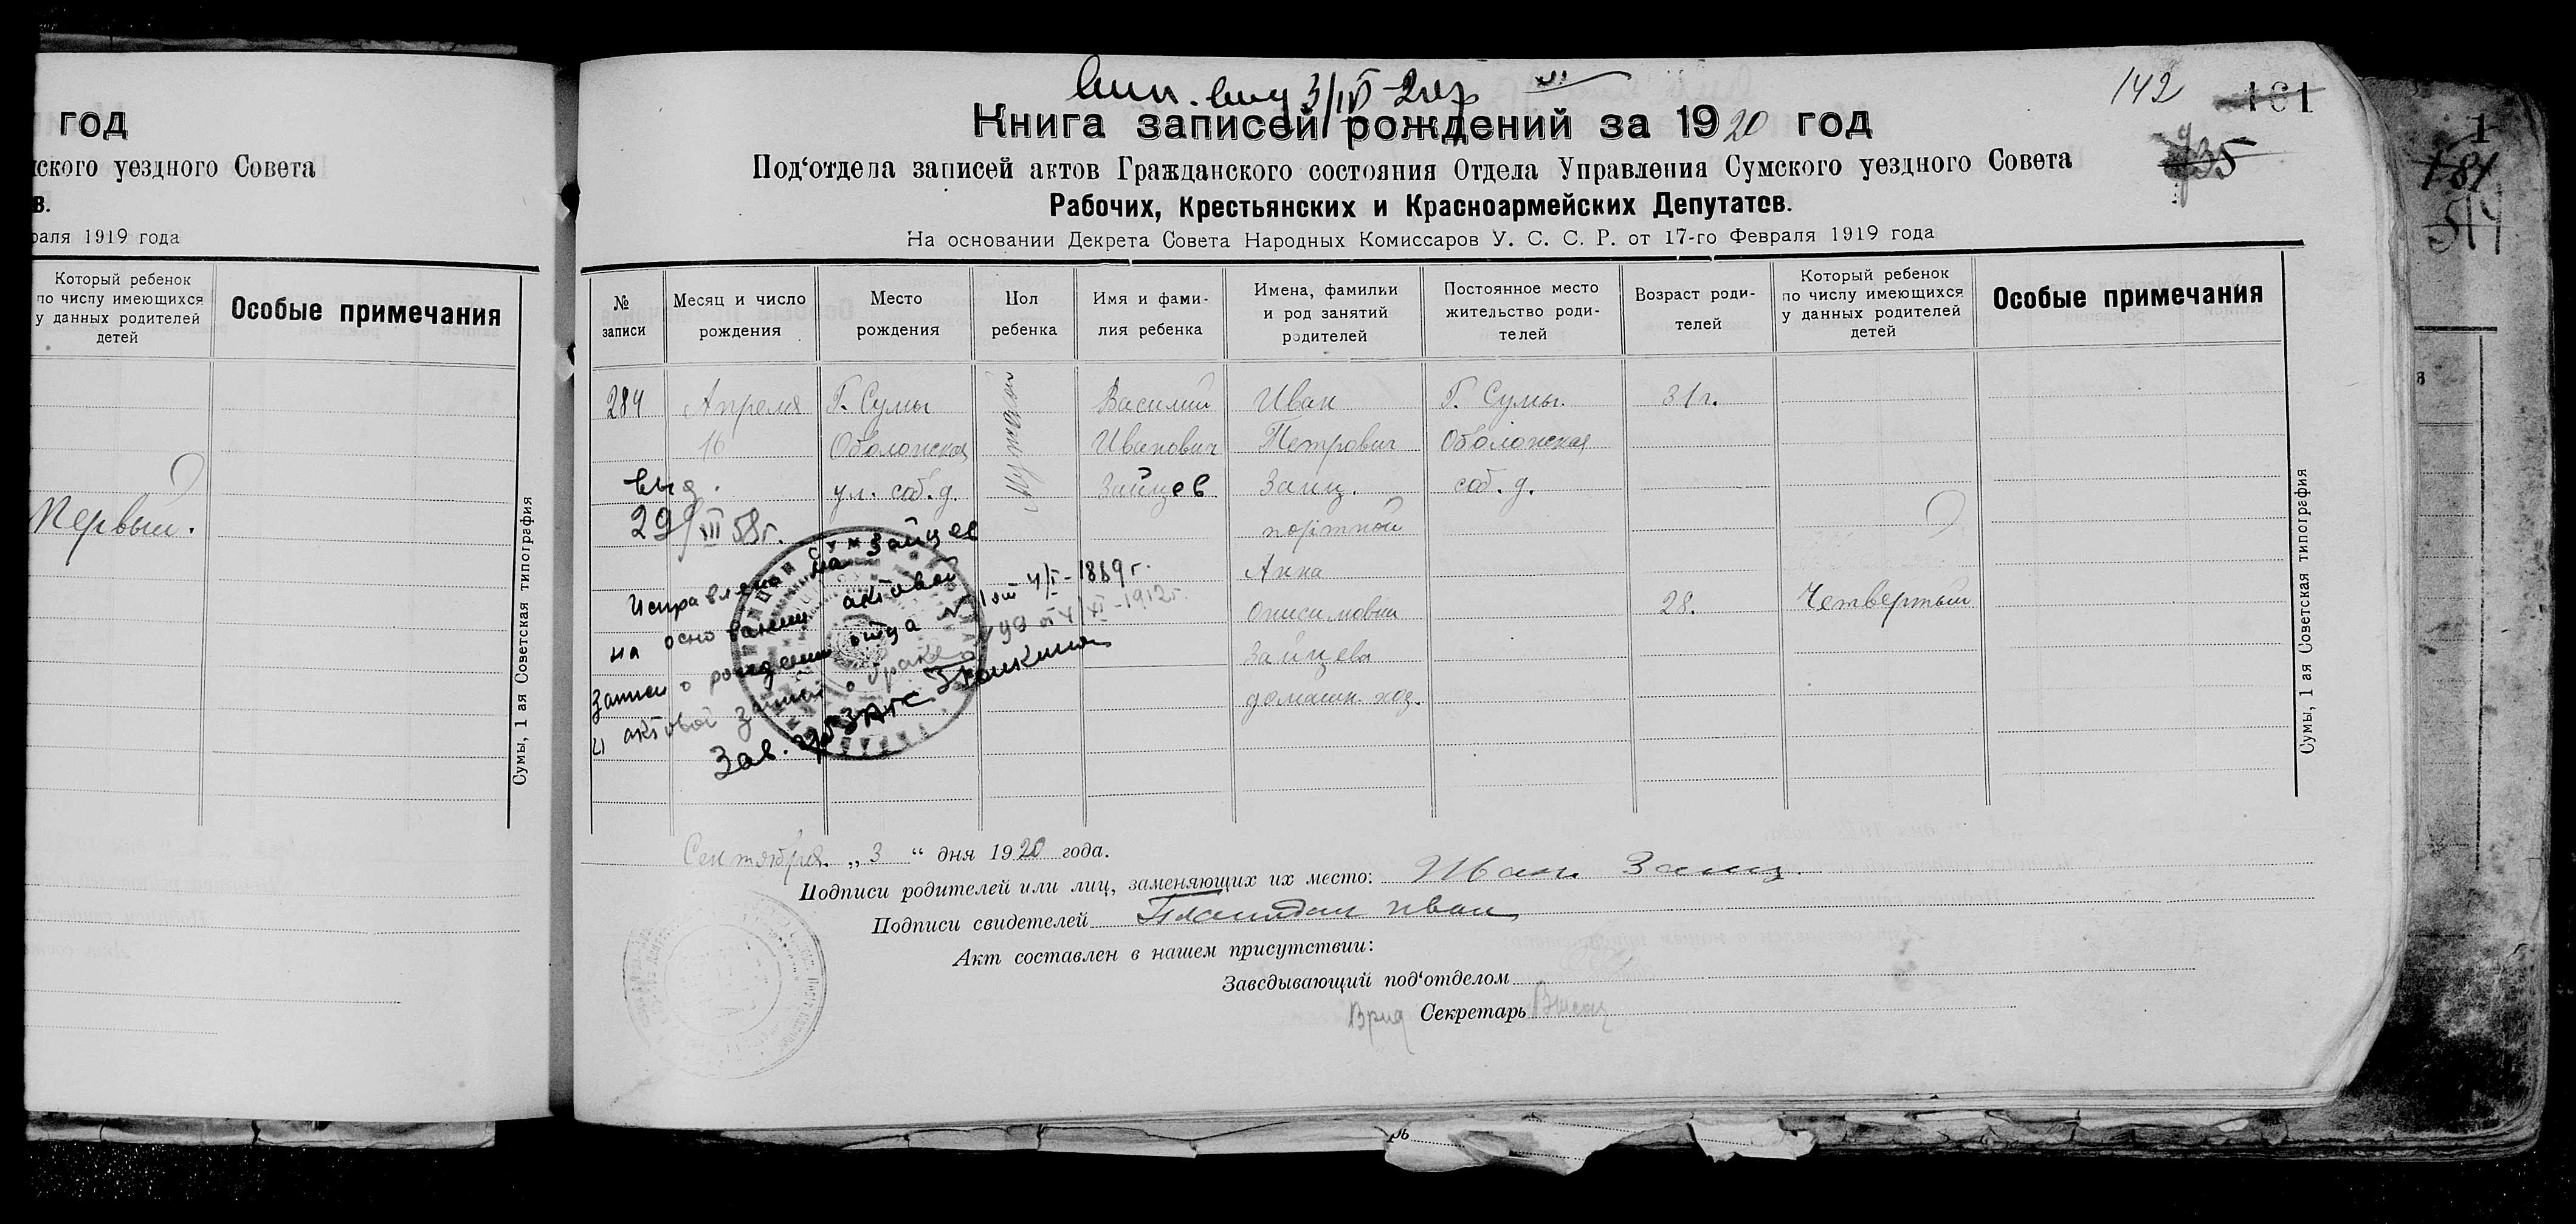 год
ского уездного Совета
в.
раля 1919 года
Который ребенок
по числу имеющихся
у данных родителей
детей
Особые примечания
Первый.
Сумы, 1 ая Советская типография
142
161
735
Книга записей рождений за 1920 год
Под‘отдела записей актов Гражданского состояния Отдела Управления Сумского уездного Совета
Рабочих, Крестьянских и Красноармейских Депутатов.
На основании Декрета Совета Народных Комиссаров У. С. С. Р. от 17-го Февраля 1919 года
№
записи
Месяц и число
рождения
Место
рождения
Пол
ребенка
Имя и фами-
лия ребенка
Имена, фамилии
и род занятий
родителей
Постоянное место
жительство роди-
телей
Возраст роди-
телей
Который ребенок
по числу имеющихся
у данных родителей
детей
Особые примечания
284
Апреля
16
Г. Сумы
Оболонская
ул. соб. д.
Мужской
Василий
Иванович
Зайцев
Иван
Петрович
Заяц.
портной
Анна
Онисимовна
Зайцева
домашн. хоз.
Г. Сумы.
Оболонская
соб. д.
31 г.
28.
Четвертый
выд.
29/VII 58г.
Исправлена на Зайцев
на основании актовой
записи о рождении отца № 1 от 4/I-1889 г.
и актовой записи о браке № 99 от 4/XI-1912г.
Зав. ЗАГС
Сентября „ 3 “ дня 1920 года.
Подписи родителей или лиц, заменяющих их место: Иван Заяц.
Подписи свидетелей Иван
Акт составлен в нашем присутствии:
Заведывающий под‘отделом
Врид Секретарь
Сумы, 1 ая Советская типография
1
181
514